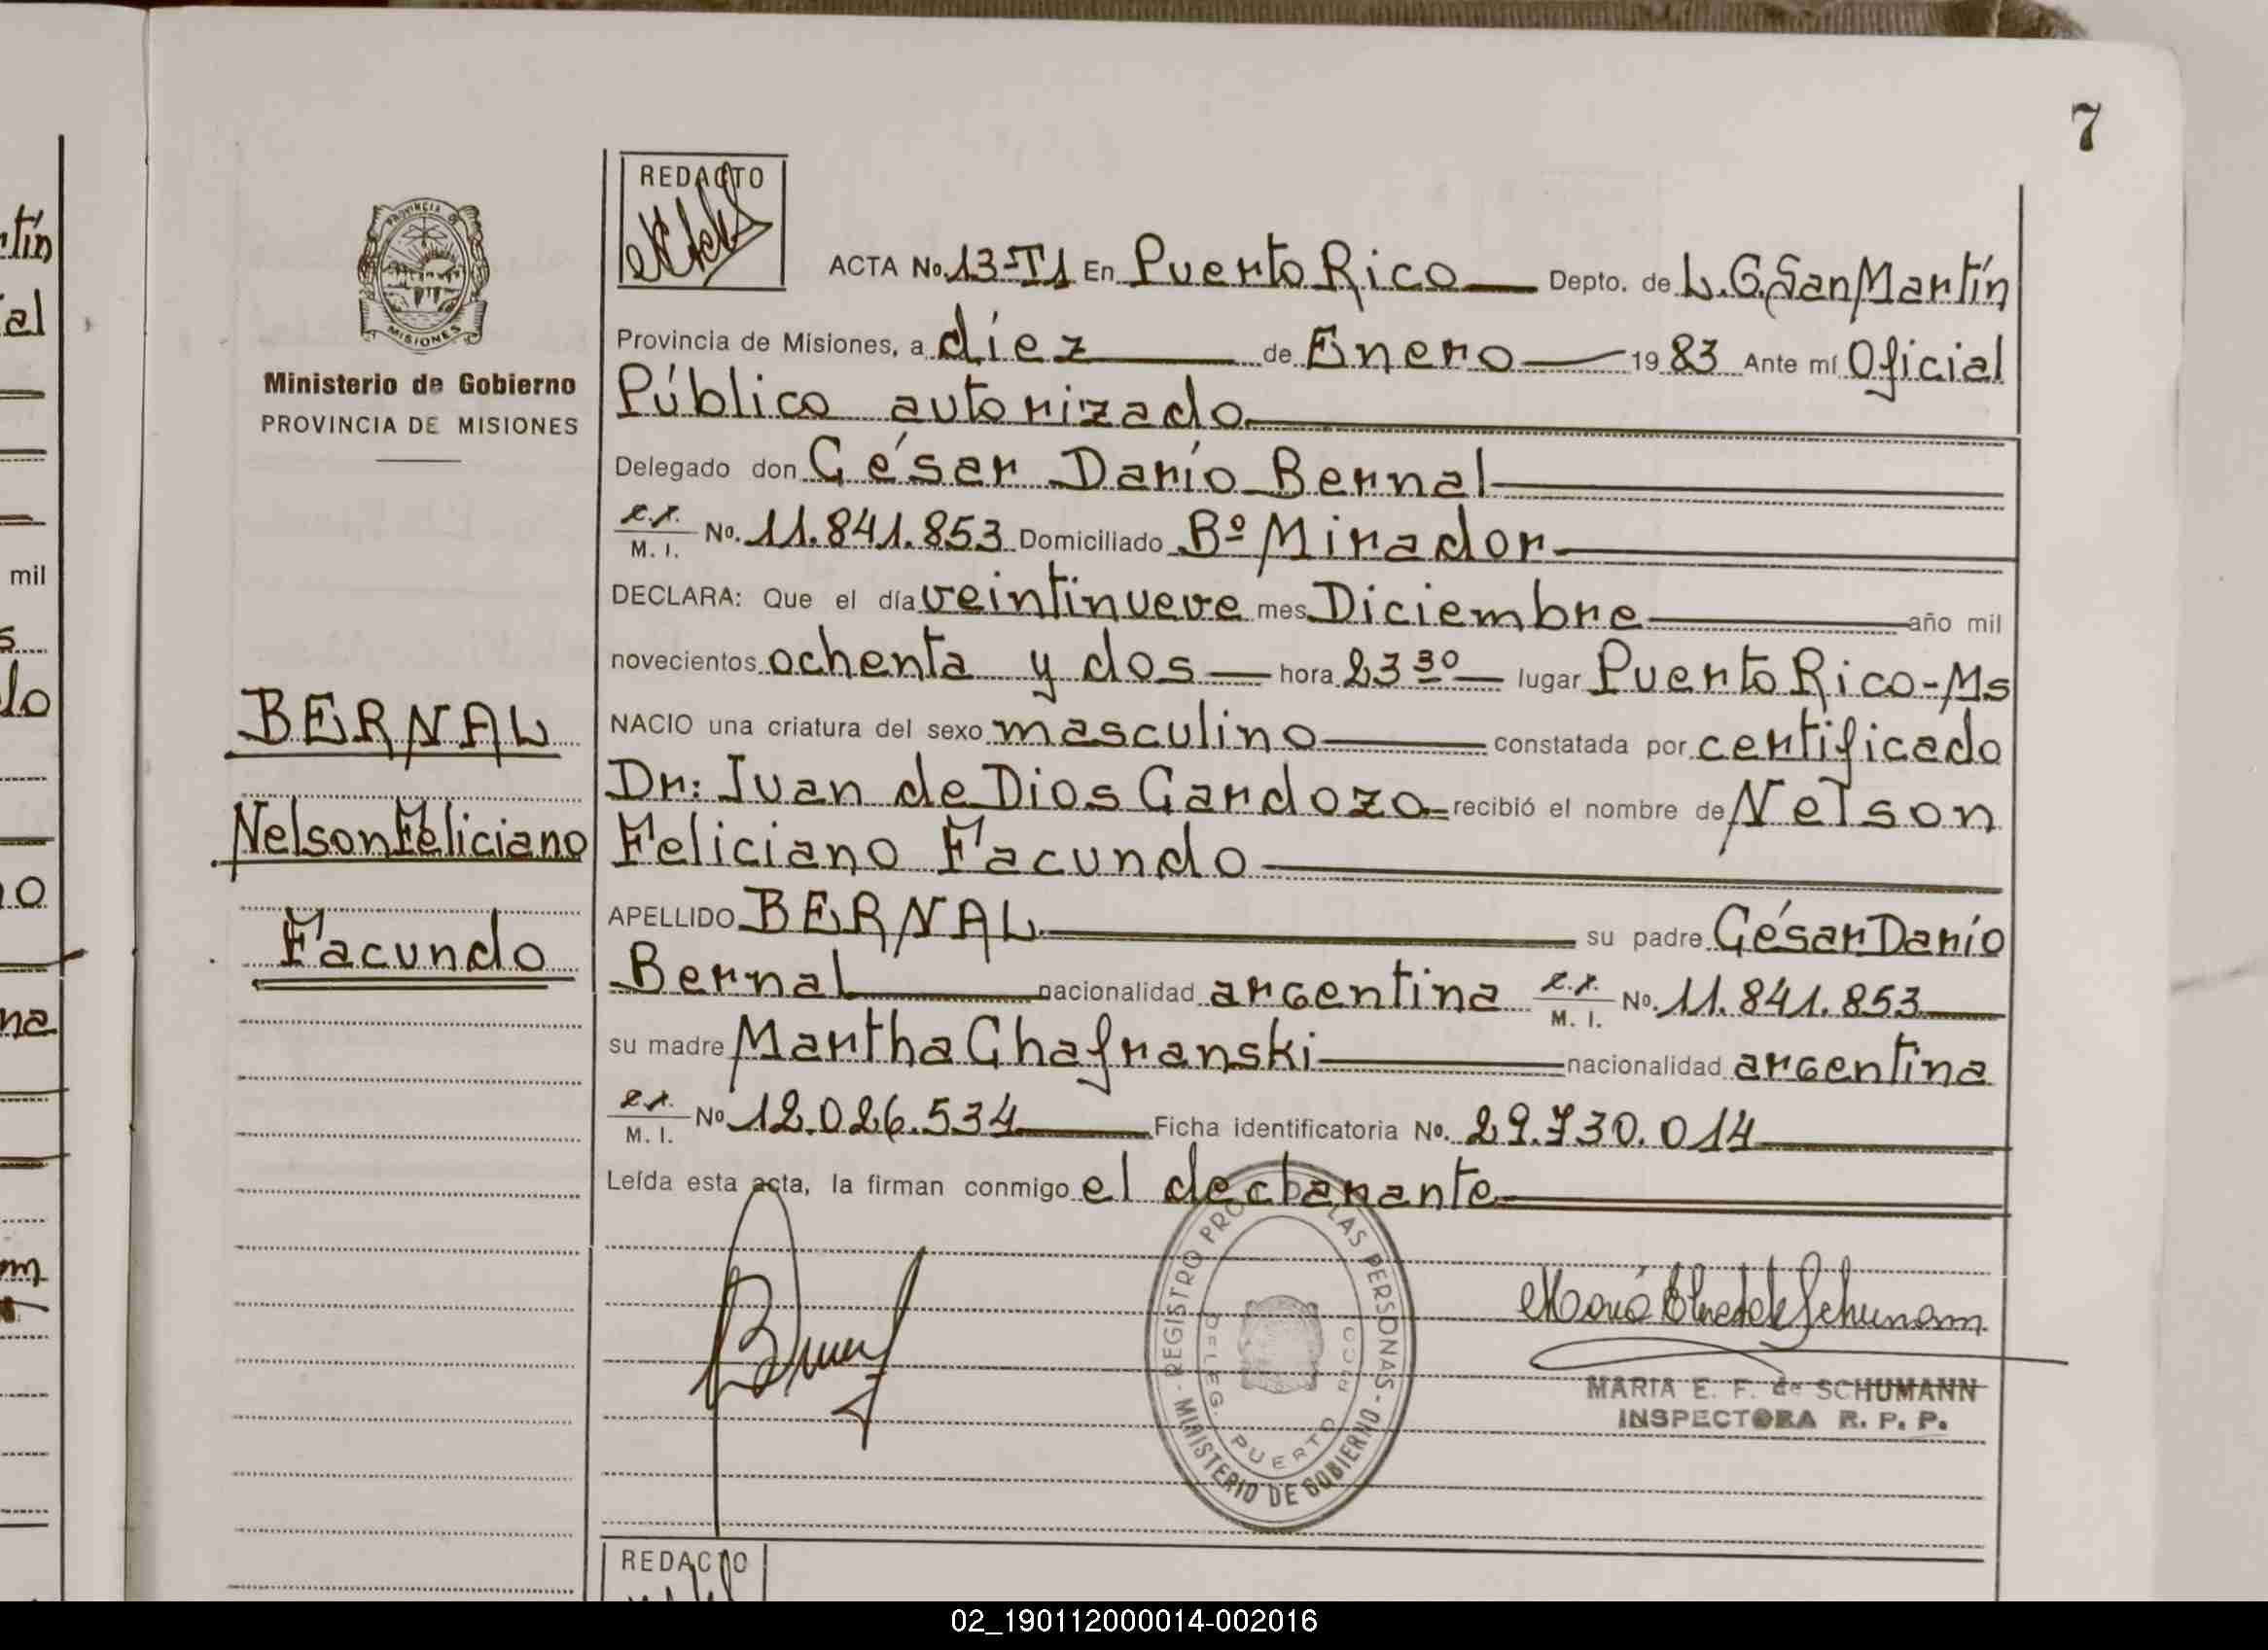 7
REDACTO
ACTA No. 13-T1 En Puerto Rico Depto. de L.G.San Martín
Provincia de Misiones, a diez de Enero 1983 Ante mí Oficial
Público autorizado
Delegado don César Darío Bernal
M. I. No. 11.841.853 Domiciliado Bº Mirador
DECLARA: Que el día veintinueve mes Diciembre año mil
novecientos ochenta y dos hora 23 30 lugar Puerto Rico-Ms
NACIO una criatura del sexo masculino constatada por certificado
Dr: Juan de Dios Cardozo recibió el nombre de Nelson
Feliciano Facundo
APELLIDO BERNAL su padre César Darío
Bernal nacionalidad argentina M. I. No. 11.841.853
su madre Martha Chafranski nacionalidad argentina
M. I. No 12.026.534 Ficha identificatoria No. 29.730.014
Leída esta acta, la firman conmigo el declarante
PROVINCIA D MISIONES
Ministerio de Gobierno
PROVINCIA DE MISIONES
BERNAL
Nelson Feliciano
Facundo
REGISTRO PRO LAS PERSONAS - MINISTERIO DE GOBIERNO -
DELEG PUERTO RICO
MARIA E. F. de SCHUMANN
INSPECTORA R. P. P.
REDACTO
tín
al
mil
lo
02_190112000014-002016